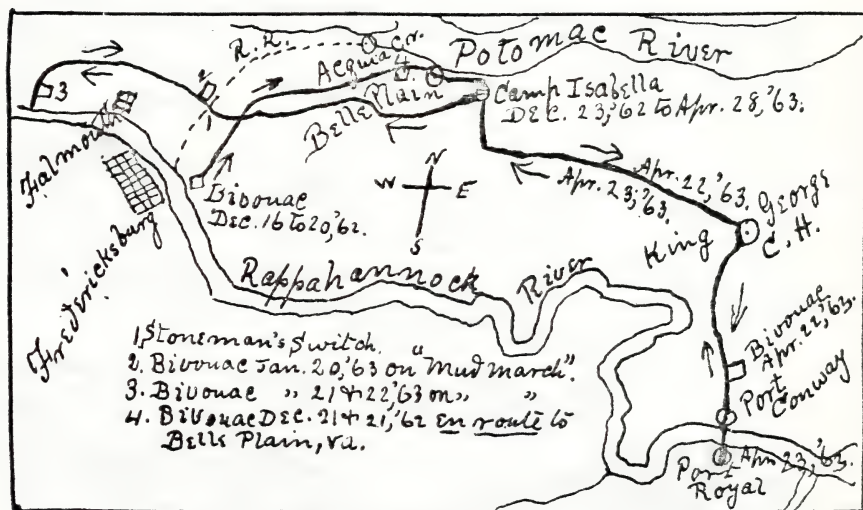 R.R.
Acquia Cr.
Potomac River
4
Belle Plain
Camp Isabella
Dec. 23,'62 to Apr. 28,'63.
3
2
Falmouth
Fredericksburg
Bivouac
Dec. 16 to 20,'62.
N
W E
S
Apr. 22,'63.
Apr. 23,'63.
King George
C.H.
Rappahannock River
Bivouac
Apr. 22,'63.
Port
Conway
Apr. 23,'63.
Port
Royal
1, Stoneman's Switch.
2. Bivouac Jan. 20,'63 on "Mud march".
3. Bivouac " 21 & 22,'63 on " "
4. Bivouac Dec. 21 & 21,'62 En route to
Belle Plain, Va.